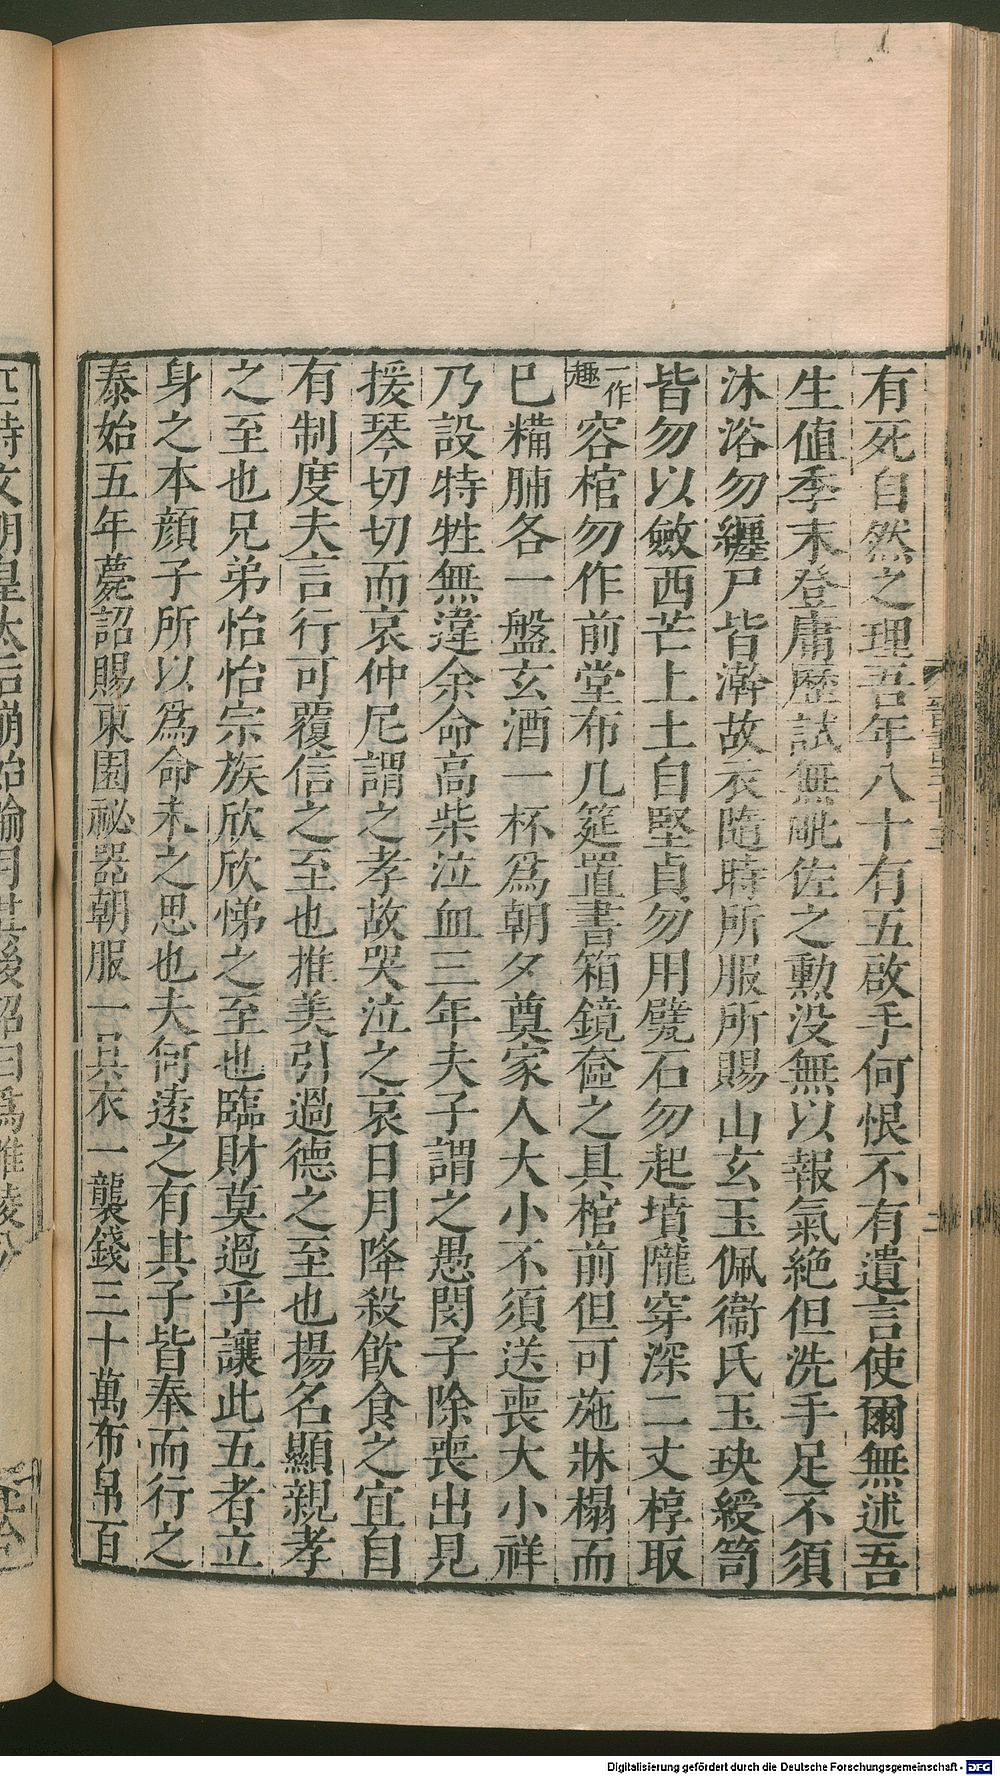 有死自然之理吾年八十有五啟手何恨不有遺言使爾無述吾
生值季末登庸歷試無毗佐之勳没無以報氣絕但洗手足不須
沐浴勿纏尸皆澣故衣隨時所服所賜山玄玉佩衞氏玉玦綬笥
皆勿以斂西芒上土自堅貞勿用甓石勿起墳隴穿深二丈椁取
一作趣容棺勿作前堂布几筵置書箱鏡奩之具棺前但可施牀榻而
已糒脯各一盤玄酒一杯爲朝夕奠家人大小不須送喪大小祥
乃設特牲無違余命高柴泣血三年夫子謂之愚閔子除喪出見
援琴切切而哀仲尼謂之孝故哭泣之哀日月降殺飲食之宜自
有制度夫言行可覆信之至也推美引過德之至也揚名顯親孝
之至也兄弟怡怡宗族欣欣悌之至也臨財莫過乎讓此五者立
身之本顔子所以爲命未之思也夫何遠之有其子皆奉而行之
泰始五年薨詔賜東園祕器朝服一具衣一襲錢三十萬布帛百
時文明皇太后崩始踰月其後詔曰爲睢陵公
Digitalisierung gefördert durch die Deutsche Forschungsgemeinschaft - DFG